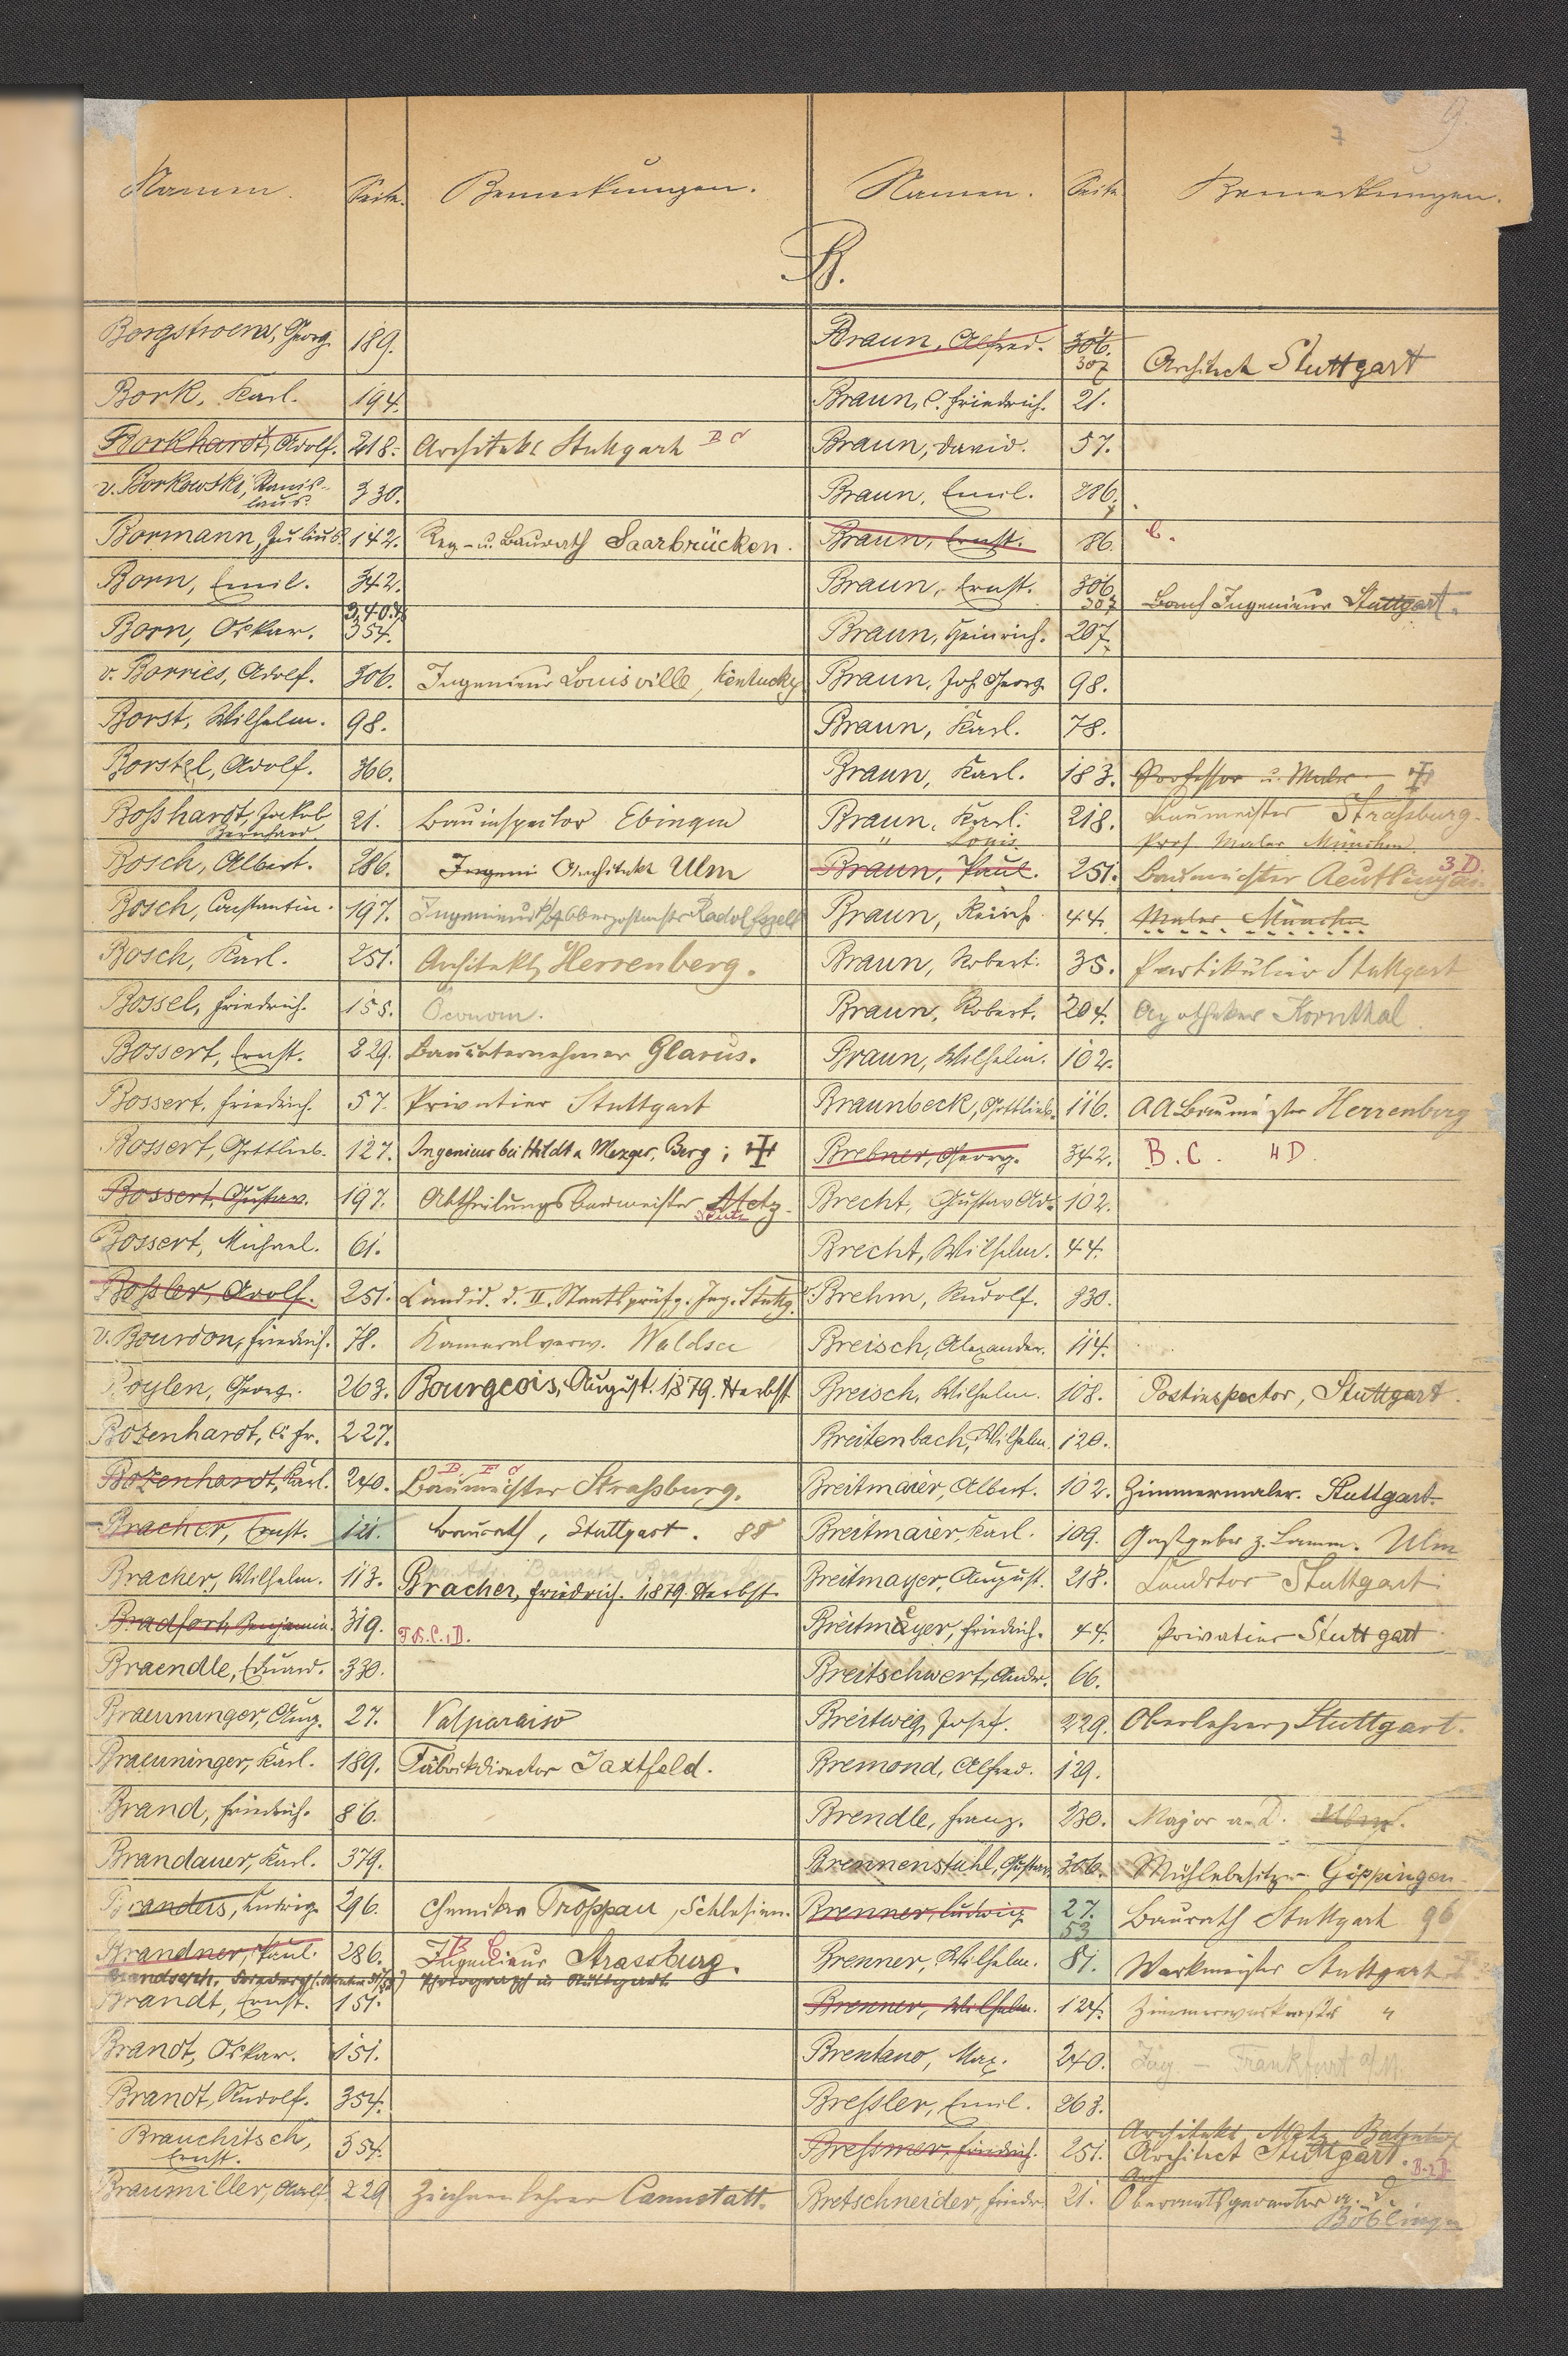 7 9.
Namen. Seite. Bemerkungen. Namen. Seite Bemerkungen.
B.
Borgstroem, Georg. 189.
Bork, Karl. 194.
Borkhardt, Adolf. 218. Architekt Stuttgart
v. Borkowski, Stanis-
laus. 330.
Bormann, Julius. 142. Reg.- u. Baurath Saarbrücken.
Born, Emil. 342.
Born, Oskar. 340. 354.
v. Borries, Adolf. 306. Ingenieur Louisville, Kentucky
Borst, Wilhelm. 98.
Borstel, Adolf. 366.
Boßhardt, Jakob
Bernhard. 21. Bauinspector Ebingen
Bosch, Albert. 286. Architekt Ulm
Bosch, Constantin. 197. Ingenieur Radolfszell
Bosch, Karl. 251. Architekt, Herrenberg.
Bossel, Friedrich. 155. Öconom.
Bossert, Ernst. 229. Bauunternehmer Glarus.
Bossert, Friedrich. 57. Privatier Stuttgart
Bossert, Gottlieb. 127. Ingenieur bei Hildt u. Mezger, Berg; ✠
Bossert, Gustav. 197. Abtheilungsbaumeister Metz.
Bossert, Michael. 61.
Boßler, Adolf. 251. Candid. d. II. Staatsprüfg. Ing. Stuttg.
v. Bourdon, Friedrich. 78. Kameralverw. Waldsee
Boylen, Georg. 263. Bourgeois, August. 1879. Herbst
Bozenhardt, C. Fr. 227.
Bozenhardt, Karl. 240. Baumeister Straßburg.
Bracher, Ernst. 121. Baurath, Stuttgart. 88
Bracher, Wilhelm. 113. Bracher, Friedrich. 1879 Herbst
Bradfort, Benjamin. 319. B.C.D.
Braendle, Eduard. 330.
Braeuninger, Aug. 27. Valparaiso
Braeuninger, Karl. 189. Fabrikdirector Jaxtfeld.
Brand, Friedrich. 86.
Brandauer, Karl. 379.
Branders, Ludwig. 296. Chemiker Troppau, Schlesien.
Brandner, Paul. 286. B C Ingenieur Strassburg.
Photograph in Stuttgart
Brandt, Ernst. 151.
Brandt, Oskar. 151.
Brandt, Rudolf. 354.
Brauchitsch,
Ernst. 354.
Braumiller, Adolf. 229 Zeichnenlehrer Cannstatt.
Braun, Alfred. 306. 307 Architect Stuttgart
Braun, C. Friedrich. 21.
Braun, David. 57.
Braun, Emil. 286.
Braun, Ernst. 86. C.
Braun, Ernst. 306. 307 Ingenieur Stuttgart.
Braun, Heinrich. 207.
Braun, Joh. Georg. 98.
Braun, Karl. 78.
Braun, Karl. 183. Professor u. Maler ✠
Braun, Karl. 218. Baumeister Straßburg.
" Louis. Prof. Maler München.
Braun, Paul. 251. Baumeister Reutlingen. 3D
Braun, Reinh. 44. Maler München
Braun, Robert. 35. Partikulier Stuttgart
Braun, Robert. 204. Apotheker Kornthal
Braun, Wilhelm. 102.
Braunbeck, Gottlieb. 116. Herrenberg
Brebner, Georg. 342. B.C. 4D.
Brecht, Gustav Ad. 102.
Brecht, Wilhelm. 44.
Brehm, Rudolf. 330.
Breisch, Alexander. 114.
Breisch, Wilhelm. 108. Postinspector, Stuttgart.
Breitenbach, Wilhelm. 120.
Breitmaier, Albert. 102. Zimmermaler. Stuttgart
Breitmaier, Karl. 109. Gastgeber z. Lamm. Ulm
Breitmayer, August. 218. Stuttgart
Breitmayer, Friedrich. 44. Privatier Stuttgart
Breitschwert, Andr. 66.
Breitweg, Josef. 229. Oberlehrer, Stuttgart.
Bremond, Alfred. 129.
Brendle, Franz. 230. Major a. D. Ulm.
Brennenstuhl, Gustav. 306. Mühlebesitzer Göppingen
Brenner, Ludwig. 27. 53 Baurath Stuttgart 96
Brenner, Wilhelm. 81. Werkmeister Stuttgart
Brenner, Wilhelm. 124. "
Brentano, Max. 240. Ing. – Frankfurt a/M.
Breßler, Emil. 263.
Architekt, Metz, Bahnhof
Breßmer, Friedrich. 251. Architect Stuttgart.
Bretschneider, Friedr. 21. Böblingen